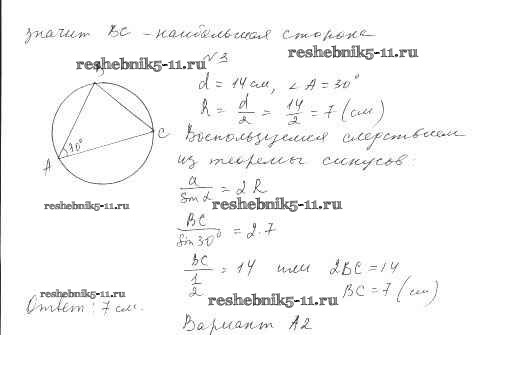 значит BC - наибольшая сторона
reshebnik5-11.ru
reshebnik5-11.ru
№3
B
d = 14 см, ∠A = 30°
R = d/2 = 14/2 = 7 (см)
Воспользуемся следствием
C
30°
A
из теоремы синусов:
a/sin α = 2R
reshebnik5-11.ru
reshebnik5-11.ru
BC/sin 30° = 2·7
BC/(1/2) = 14 или 2BC = 14
reshebnik5-11.ru
BC = 7 (см)
reshebnik5-11.ru
Ответ: 7 см.
Вариант А2